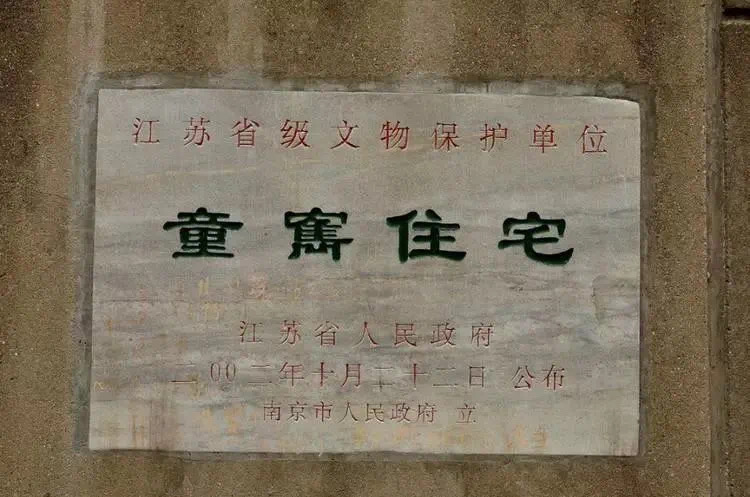 江苏省级文物保护单位
童寯住宅
江苏省人民政府
二00二年十月二十二日 公布
南京市人民政府 立